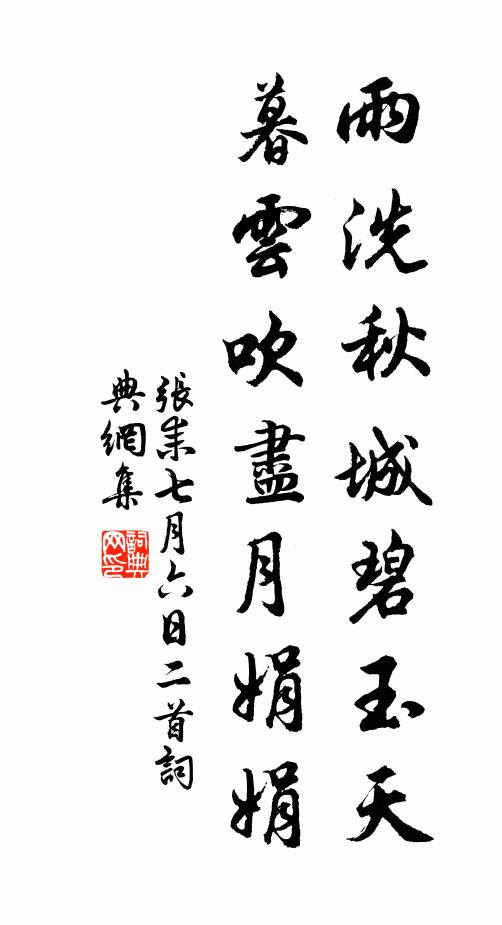 雨洗秋城碧玉天
暮雲吹盡月娟娟
張耒七月六日二首詞
典網集
詞典
网印